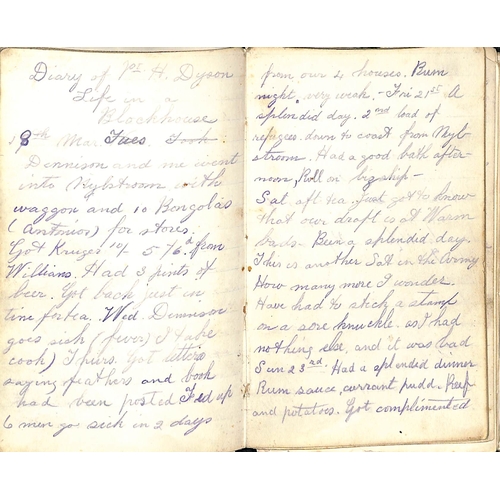 Diary of Pt H. Dyson
Life in a
Blockhouse
18th Mar Tues. Took
Dennison and me went
into Nylstroom with
waggon and 10 Bongolas
(Antmior) for stores.
Got Kruger 10/- 5/6d from
Williams. Had 3 pints of
beer. Got back just in
time for tea. Wed. Dennison
goes sick (fever) I take
cook) I purs. Got letters
saying feathers and book
had been posted Fed up
6 men go sick in 2 days
from our 4 houses. Rum
night very weak. - Fri 21st. A
splendid day. 2nd load of
refugees down to coast from Nyl-
stroom. Had a good bath after-
noon, Roll on big ship -
Sat aft. tea. Just got to know
that our draft is at Warm
bads. Been a splendid day.
This is another Sat in the Army
How many more I wonder.
Have had to stick a stamp
on a sore knuckle. as I had
nothing else, and it was bad
Sun 23rd. Had a splendid dinner
Rum sauce, currant pudd. Beef
and potatoes. Got complimented